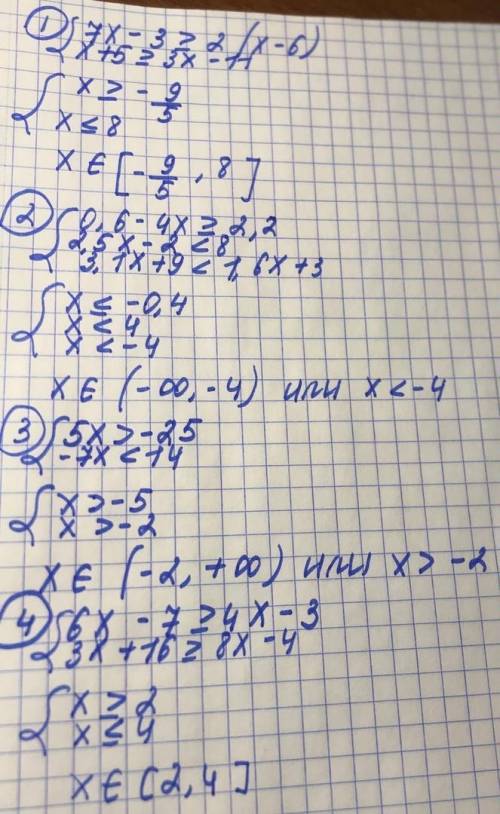 1 { 7x - 3 ≥ 2(x-6)
x+5 ≥ 3x - 11
{ x ≥ - 9/5
x ≤ 8
x ∈ [- 9/5 , 8]
2 { 0,6 - 4x ≥ 2,2
2,5x - 2 ≤ 8
3,1x + 9 < 1,6x + 3
{ x ≤ -0,4
x ≤ 4
x < -4
x ∈ (-∞, -4) или x < -4
3 { 5x > -25
-7x < 14
{ x > -5
x > -2
x ∈ (-2, +∞) или x > -2
4 { 6x - 7 ≥ 4x - 3
3x + 16 ≥ 8x - 4
{ x ≥ 2
x ≤ 4
x ∈ [2, 4]